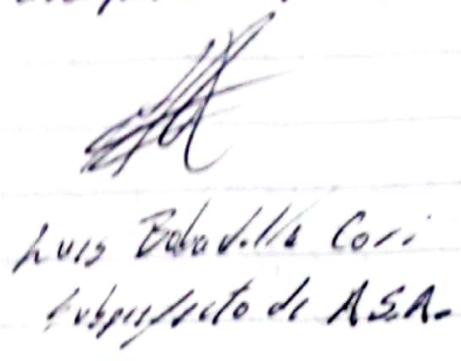 Luis Bobadilla Cori
Subprefecto de A.S.A.